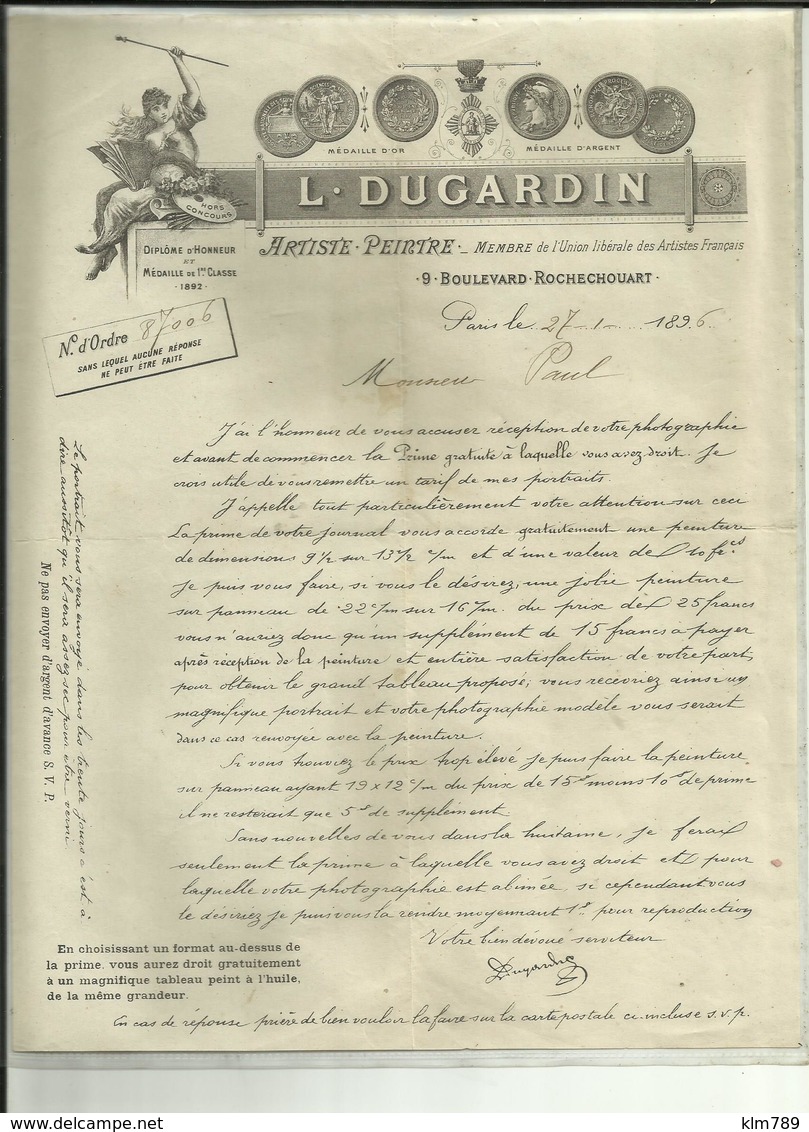 MÉDAILLE D'OR
MÉDAILLE D'ARGENT
HORS CONCOURS
L. DUGARDIN
DIPLÔME D'HONNEUR
ET
MÉDAILLE DE 1re CLASSE
1892
ARTISTE-PEINTRE - MEMBRE de l'Union libérale des Artistes Français
9. BOULEVARD ROCHECHOUART
No d'Ordre 87006
SANS LEQUEL AUCUNE RÉPONSE
NE PEUT ÊTRE FAITE
Paris le 27-1-1896
Monsieur Paul
J'ai l'honneur de vous accuser réception de votre photographie
et avant de commencer la Prime gratuite à laquelle vous avez droit. Je
crois utile de vous remettre un tarif de mes portraits.
J'appelle tout particulièrement votre attention sur ceci
La prime de votre journal vous accorde gratuitement une peinture
de dimensions 9 1/2 sur 13 1/2 c/m et d'une valeur de 10 fcs
Je puis vous faire, si vous le désirez, une jolie peinture
sur panneau de 22 c/m sur 16 c/m. du prix de 25 francs
vous n'auriez donc qu'un supplément de 15 francs à payer
après réception de la peinture et entière satisfaction de votre part,
pour obtenir le grand tableau proposé; vous recevriez ainsi un
magnifique portrait et votre photographie modèle vous serait
dans ce cas renvoyée avec la peinture.
Si vous trouvez le prix trop élevé je puis faire la peinture
sur panneau ayant 19 x 12 c/m du prix de 15f moins 10f de prime
il ne resterait que 5f de supplément.
Sans nouvelles de vous dans la huitaine, je ferai
seulement la prime à laquelle vous avez droit et pour
laquelle votre photographie est abîmée, si cependant vous
le désiriez je puis vous la rendre moyennant 1f pour reproduction
Votre bien dévoué serviteur
Dugardin
Le portrait vous sera envoyé dans les trente jours c'est à
dire aussitôt qu'il sera assez sec pour être verni.
Ne pas envoyer d'argent d'avance S. V. P.
En choisissant un format au-dessus de
la prime. vous aurez droit gratuitement
à un magnifique tableau peint à l'huile,
de la même grandeur.
En cas de réponse prière de bien vouloir la faire sur la carte postale ci-incluse s.v.p.
delcampe.net
klm789